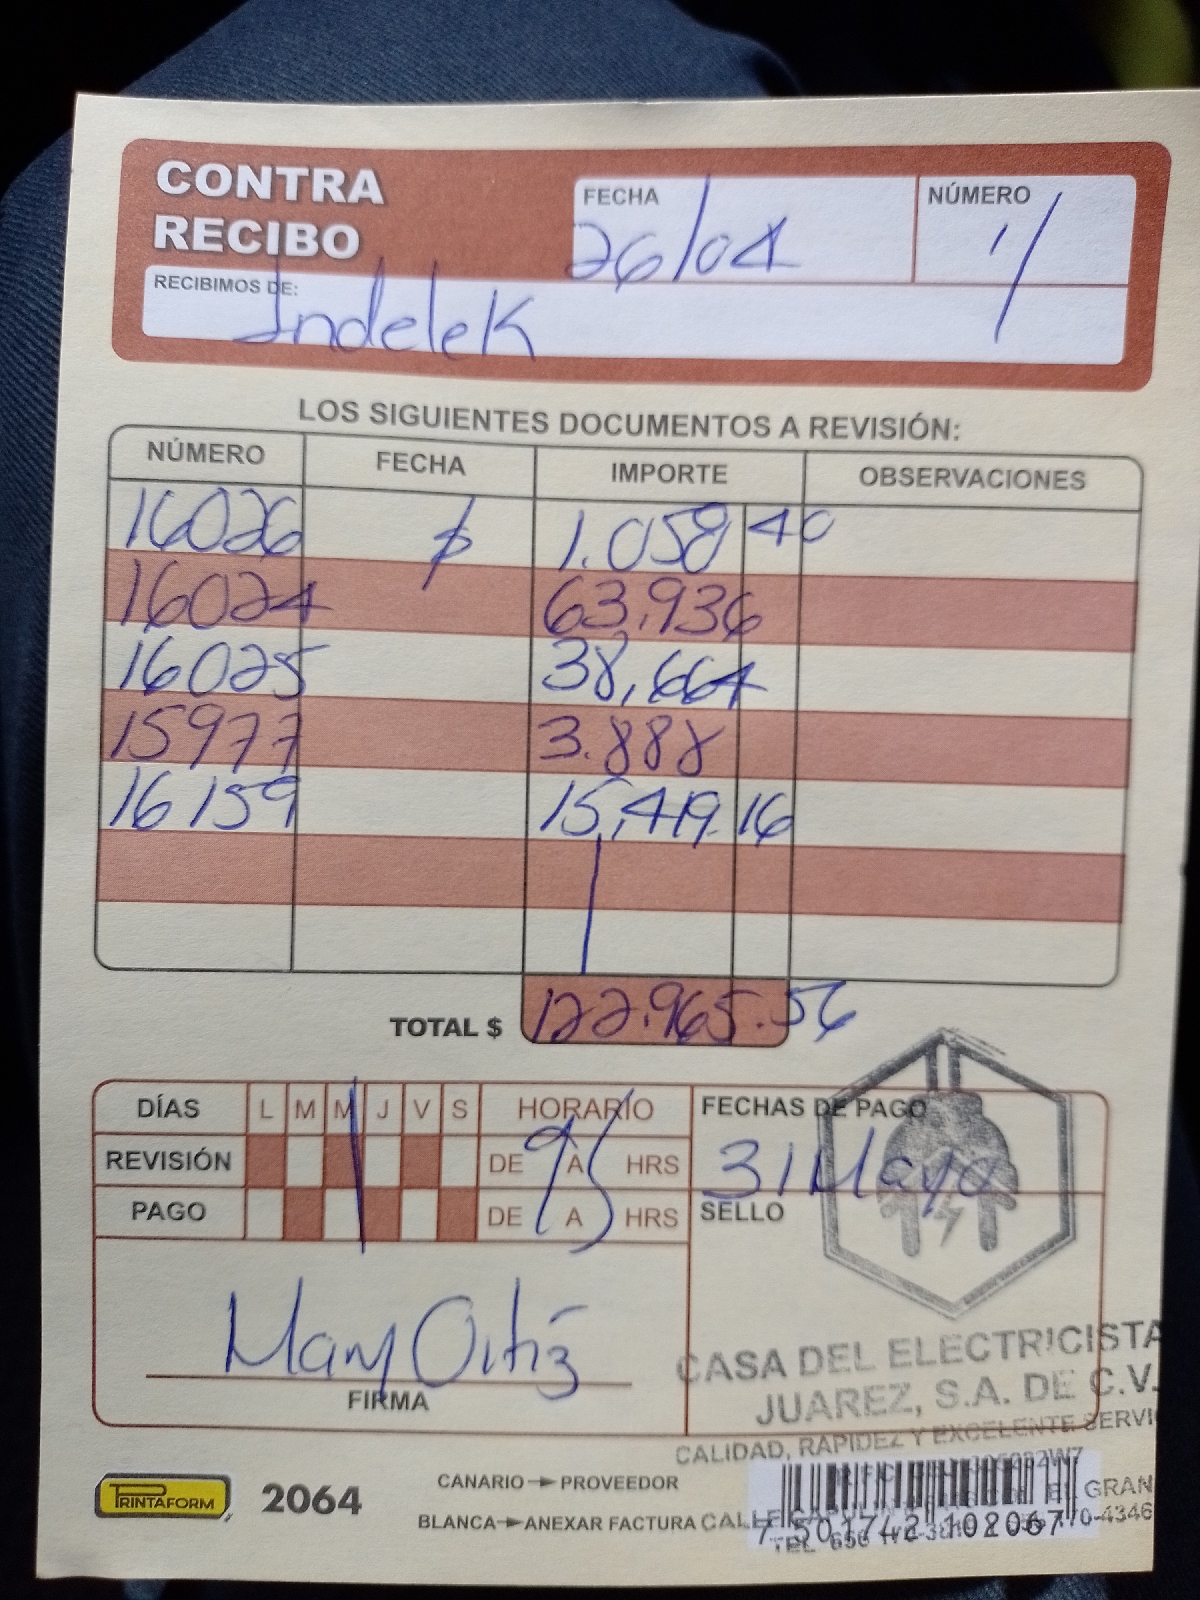 CONTRA RECIBO
FECHA 26/04
NÚMERO
RECIBIMOS DE: Indelek
LOS SIGUIENTES DOCUMENTOS A REVISIÓN:
NÚMERO FECHA IMPORTE OBSERVACIONES
16026 $ 1.058 40
16024 63,936
16025 38,664
15977 3.888
16159 15,419.16
TOTAL $ 122.965.56
DÍAS L M M J V S HORARIO FECHAS DE PAGO
REVISIÓN DE 9 A 5 HRS 31 Mayo
PAGO DE A HRS SELLO
Mary Ortiz
FIRMA
CASA DEL ELECTRICISTA
JUAREZ, S.A. DE C.V.
CALIDAD, RAPIDEZ Y EXCELENTE SERVI
PRINTAFORM 2064
CANARIO → PROVEEDOR
BLANCA → ANEXAR FACTURA
7 501742 102067